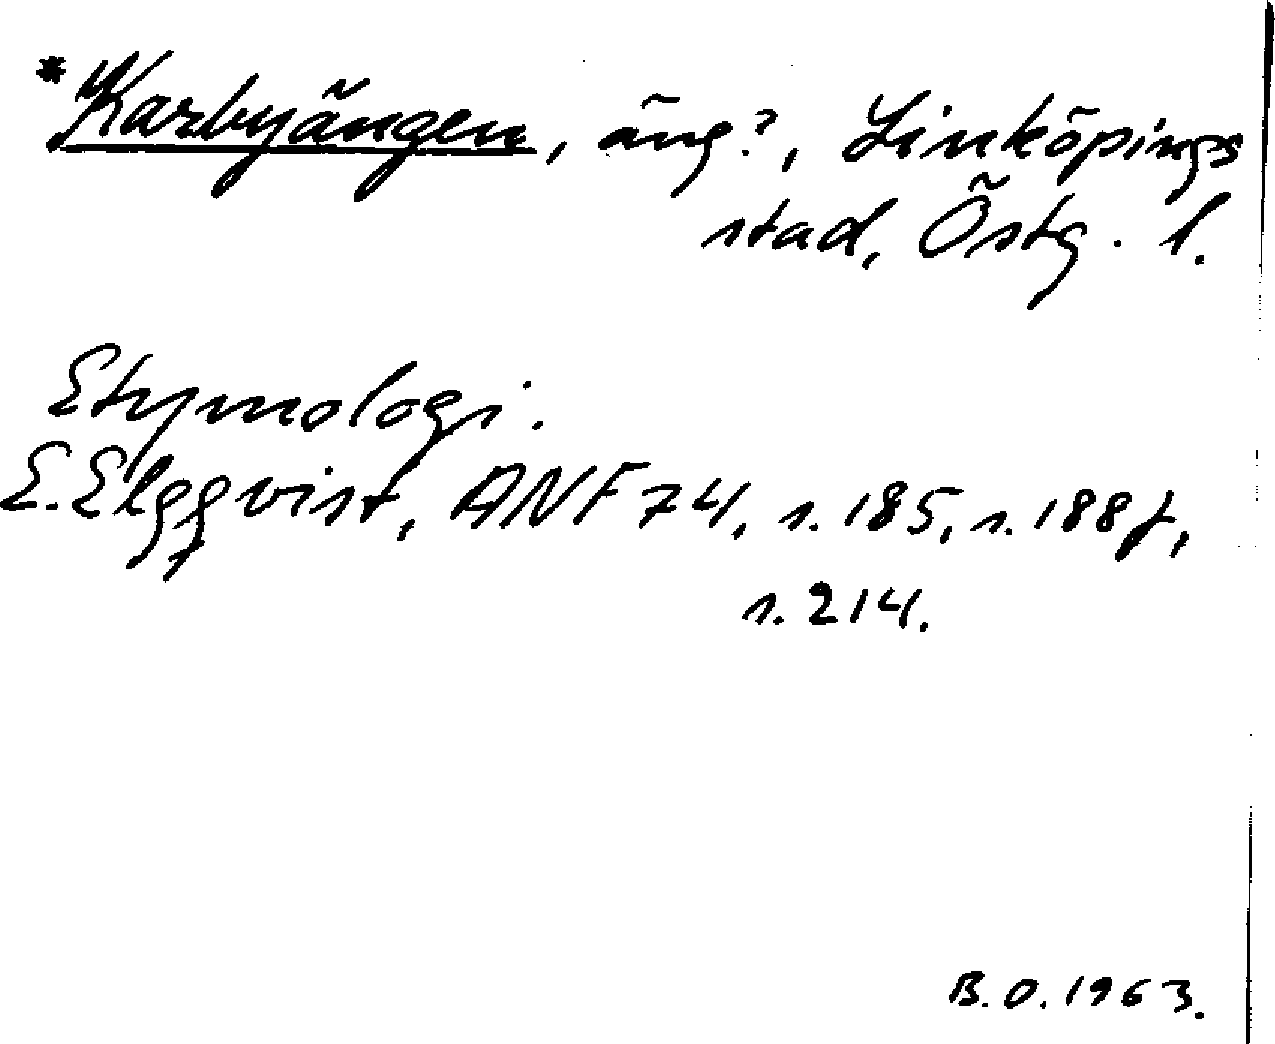 *Karbyängen, äng?, Linköpings
stad, Östg. l.
Etymologi.
E. Elgqvist, ANF 74, s. 185, s. 188 f,
s. 214.
B.O. 1963.